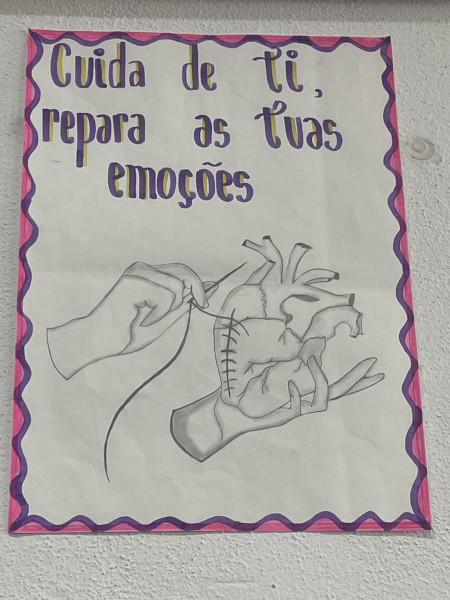 Cuida de ti,
repara as tuas
emoções